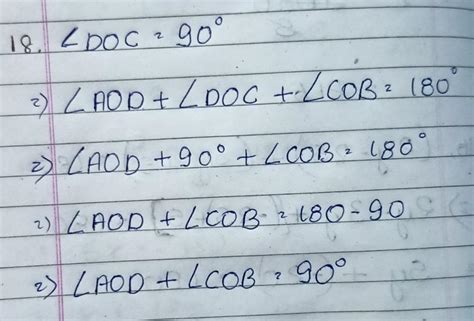 18. ∠DOC = 90°
=) ∠AOD + ∠DOC + ∠COB = 180°
=) ∠AOD + 90° + ∠COB = 180°
=) ∠AOD + ∠COB = 180 - 90
=) ∠AOD + ∠COB = 90°